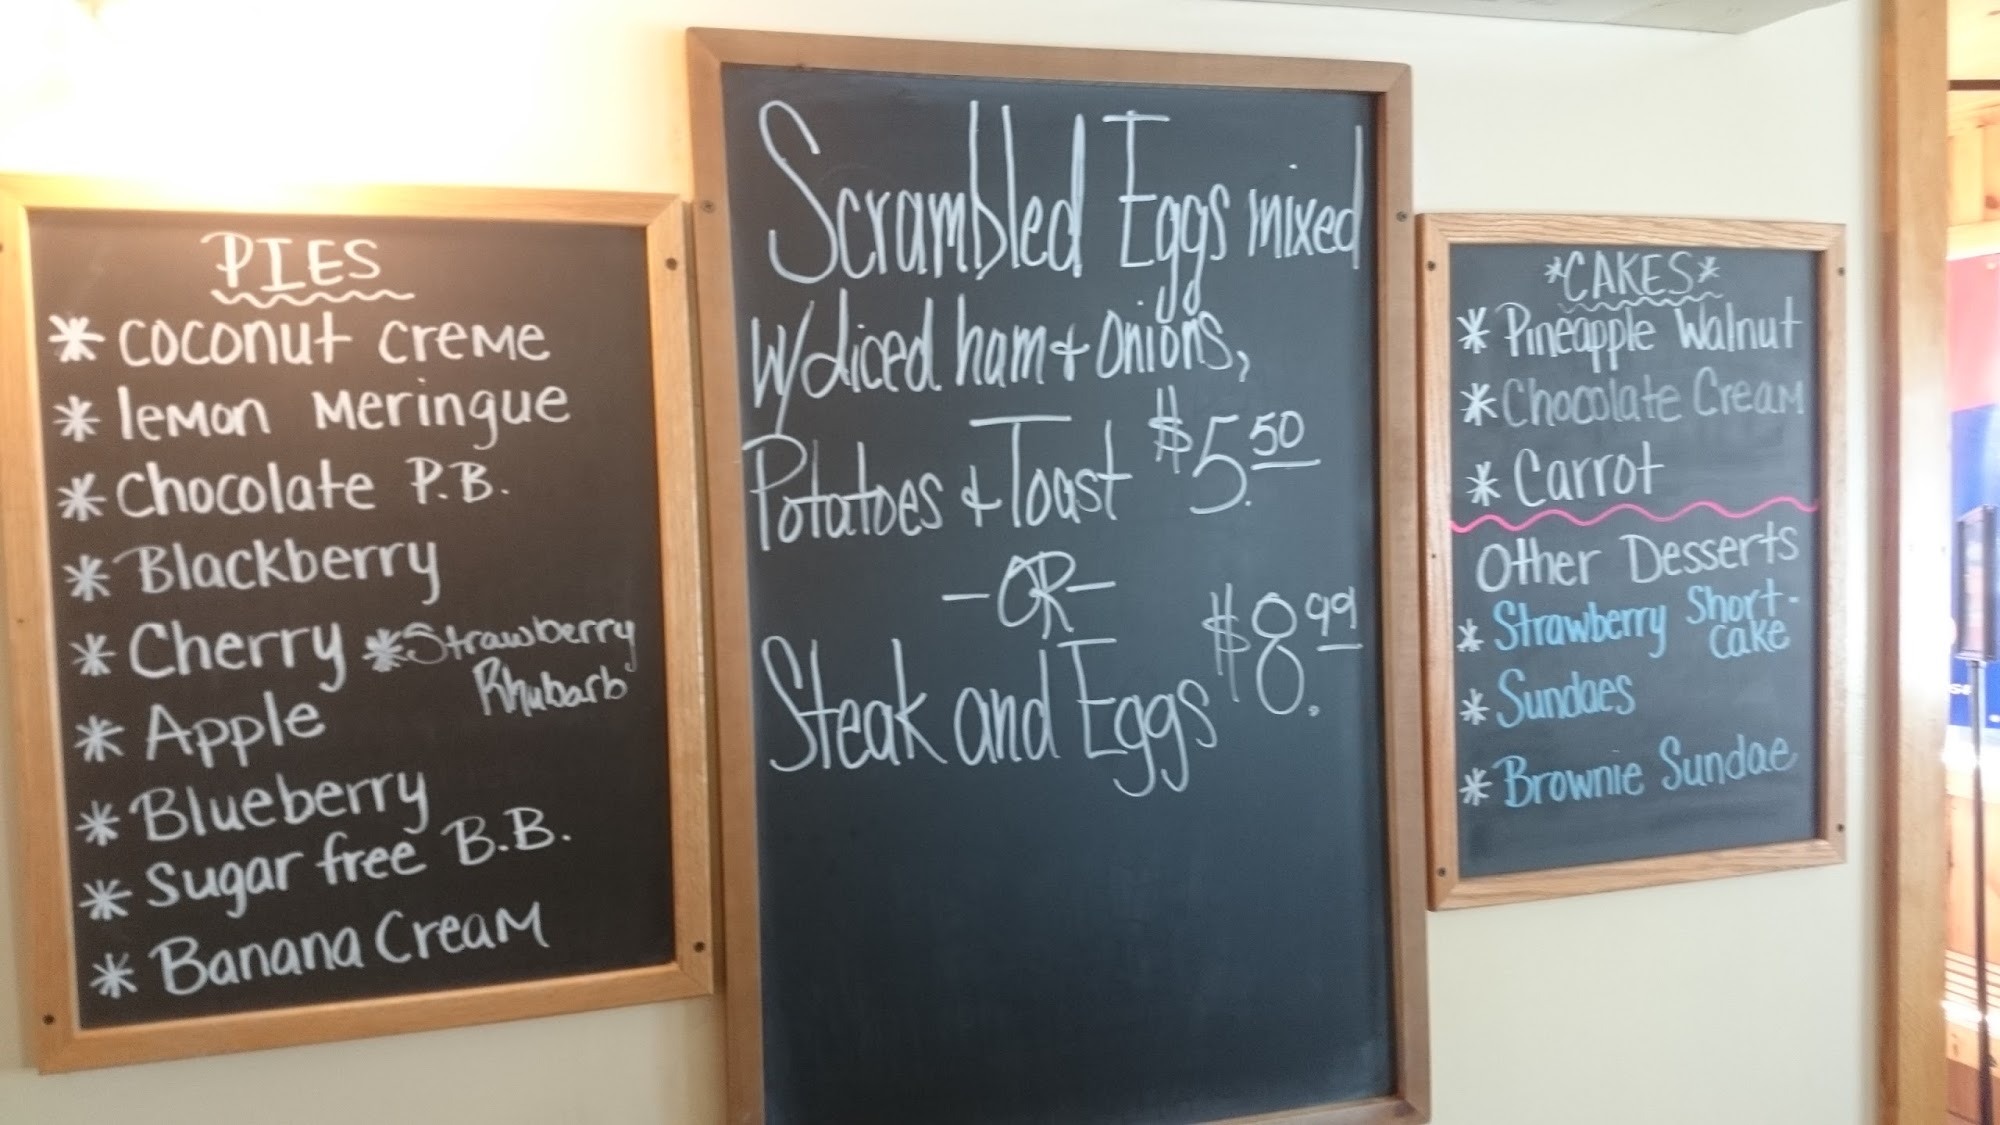 PIES
* Coconut Creme
* lemon Meringue
* Chocolate P.B.
* Blackberry
* Cherry * Strawberry
Rhubarb
* Apple
* Blueberry
* Sugar free B.B.
* Banana Cream
Scrambled Eggs mixed
w/diced ham + onions,
Potatoes + Toast $5.50
-OR-
Steak and Eggs $8.99
*CAKES*
* Pineapple Walnut
* Chocolate Cream
* Carrot
Other Desserts
* Strawberry Short-
Cake
* Sundaes
* Brownie Sundae